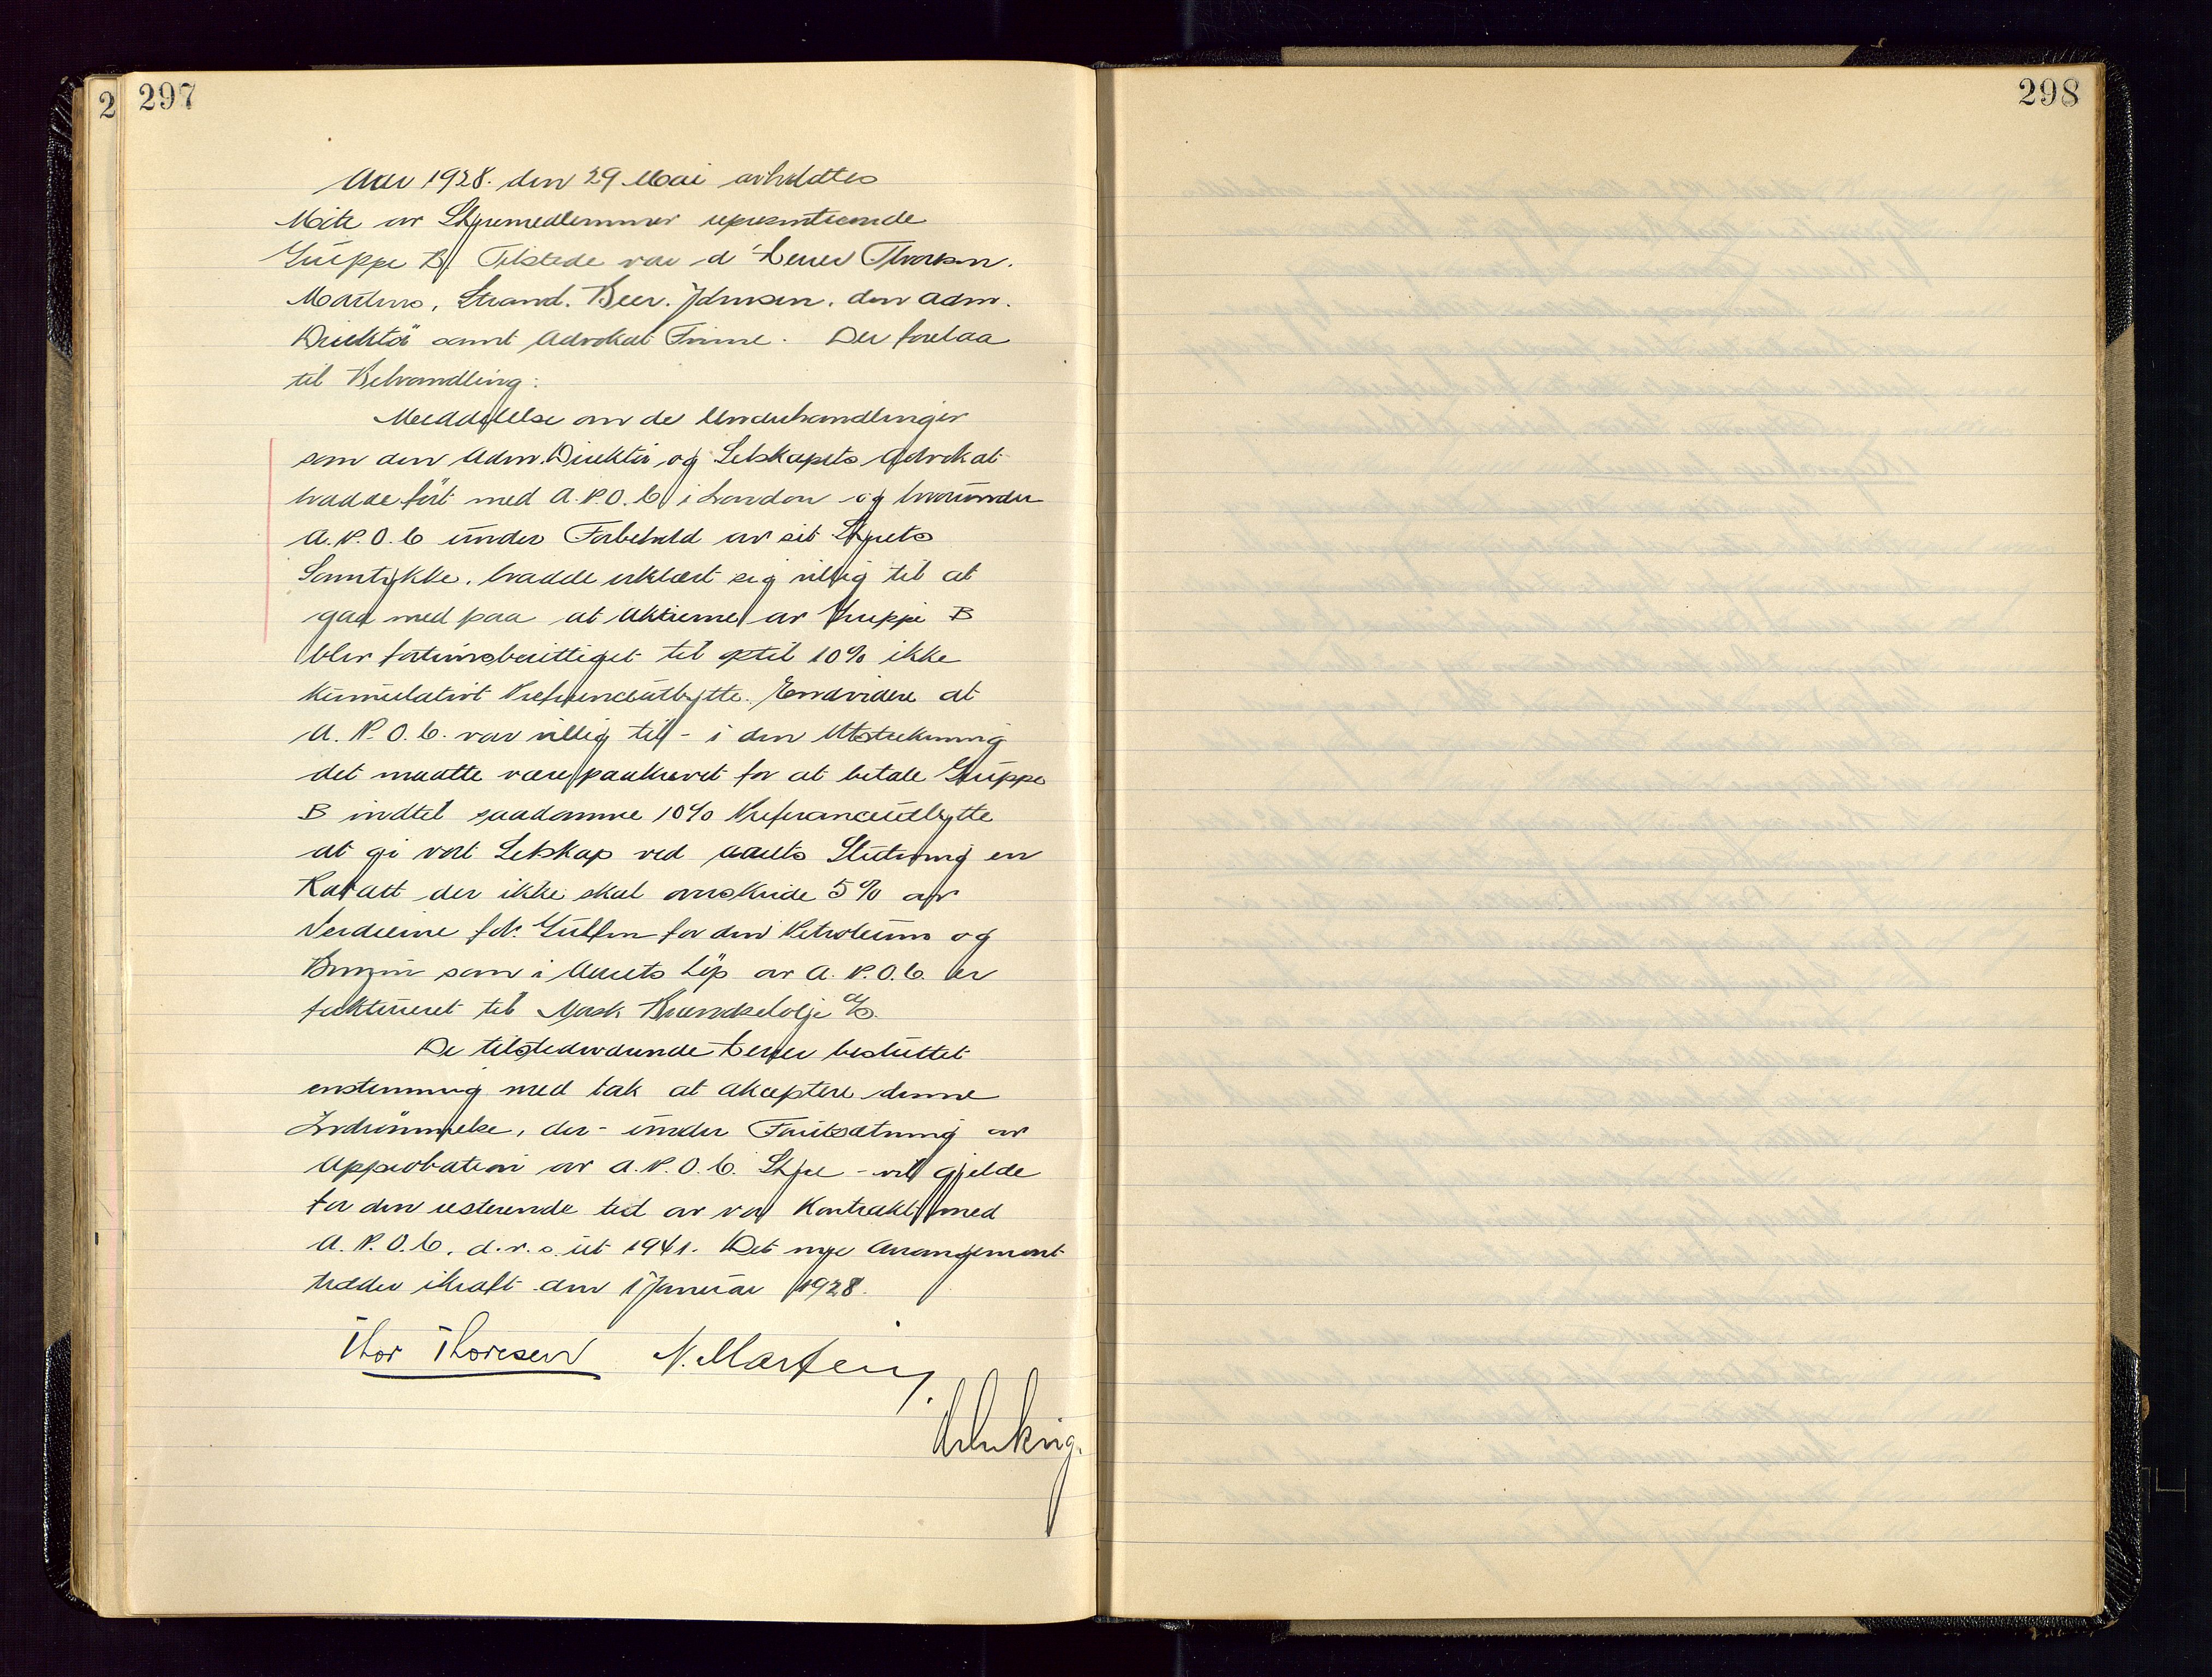 2 297
298
Aar 1928. den 29 Mai avholdtes
Möte av Styremedlemmer repræsenterende
Gruppe B. Tilstede var d'herrer Thoresen.
Martens, Strand. Beer. Johnsen. den adm.
Direktör samt Advokat Finne. Der forelaa
til Behandling:
Meddelelse om de Underhandlinger
som den Adm. Direktör og Selskapets Advokat
hadde fört med A.P.O.C. i London og hvorunder
A.P.O.C under Forbehold av sit Styrets
Samtykke, hadde erklært sig villig til at
gaa med paa at Aktierne av Gruppe B
blir fortrinsberettiget til optil 10% ikke
kumulativt Preferenceutbytte. Endvidere at
A.P.O.C. var villig til - i den Utstrekning
det maatte være paakrevet for at betale Gruppe
B indtil saadanne 10% Preferanceutbytte
at gi vort Selskap ved aarets Slutning en
Rabatt der ikke skal overskride 5% av
Verdierne fob. Gulfen for den Petroleum og
Benzin som i Aarets Löp av A.P.O.C. er
faktureret til Norsk Brændselolje A/S.
De tilstedeværende herrer besluttet
enstemmig med tak at akceptere denne
Indrömmelse, der - under Forutsætning av
Approbation av A.P.O.C. Styre - vil gjelde
for den resterende tid av vor Kontrakt med
A.P.O.C. d.v.s. ut 1941. Det nye Arrangement
træder ikraft den 1 Januar 1928.
Thor Thoresen N. Martens.